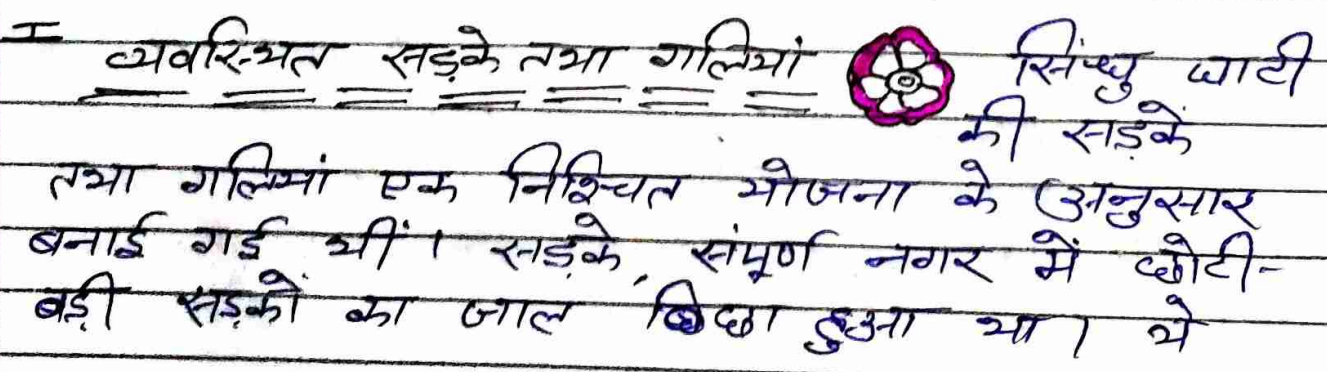 I व्यवस्थित सड़के तथा गलियां सिंन्धु घाटी
की सड़कें
तथा गलियां एक निश्चित योजना के अनुसार
बनाई गई थीं। सड़के, संपूर्ण नगर में छोटी-
बड़ी सड़कों का जाल बिछा हुआ था। ये